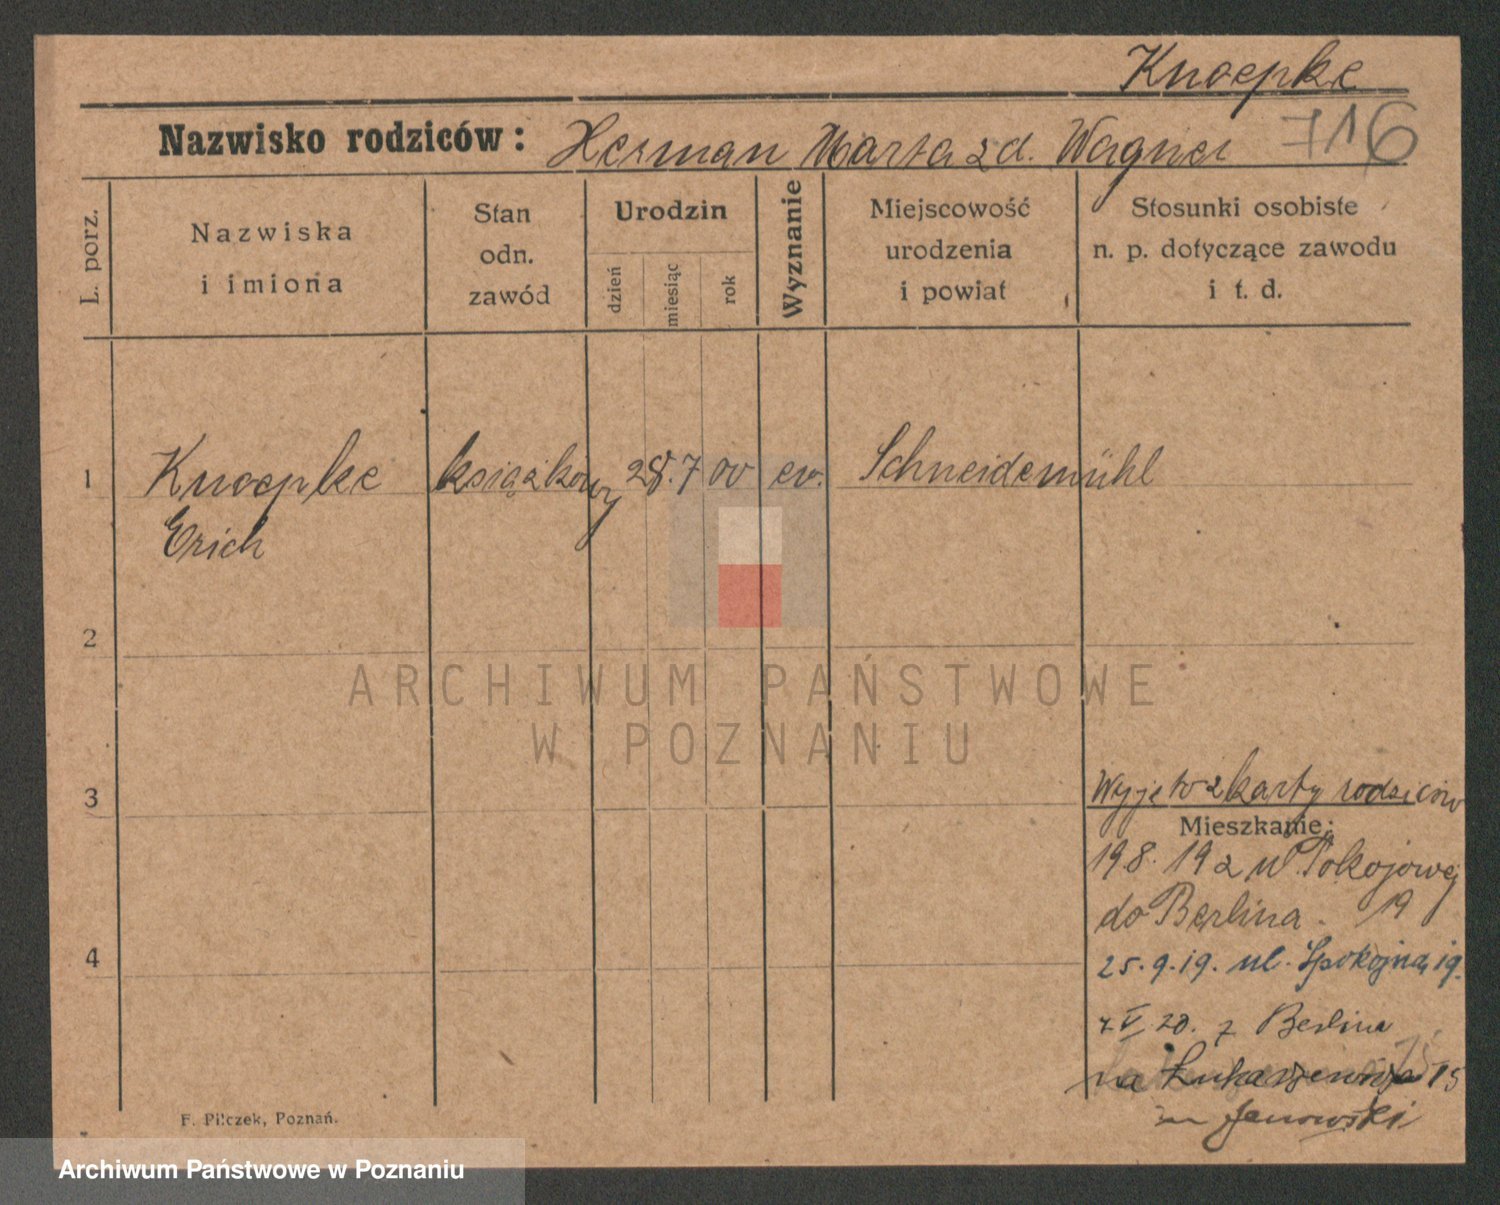 Knoepke
Nazwisko rodziców: Herman Marta zd. Wagner 716
L. porz.
Nazwiska
i imiona
Stan
odn.
zawód
Urodzin
dzień
miesiąc
rok
Wyznanie
Miejscowość
urodzenia
i powiat
Stosunki osobiste
n. p. dotyczące zawodu
i t. d.
1 Knoepke książkowy 28. 7 00 ev. Schneidemühl
Erich
2
ARCHIWUM PAŃSTWOWE
W POZNANIU
3
Wyjęto z karty rodziców
Mieszkanie:
19 8. 19 z ul Pokojowej
do Berlina. 19
4
25. 9. 19. ul. Spokojna 19.
7 V 20. z Berlina
na Łukaszewicza 15
Janowski
F. Pilczek, Poznań.
Archiwum Państwowe w Poznaniu